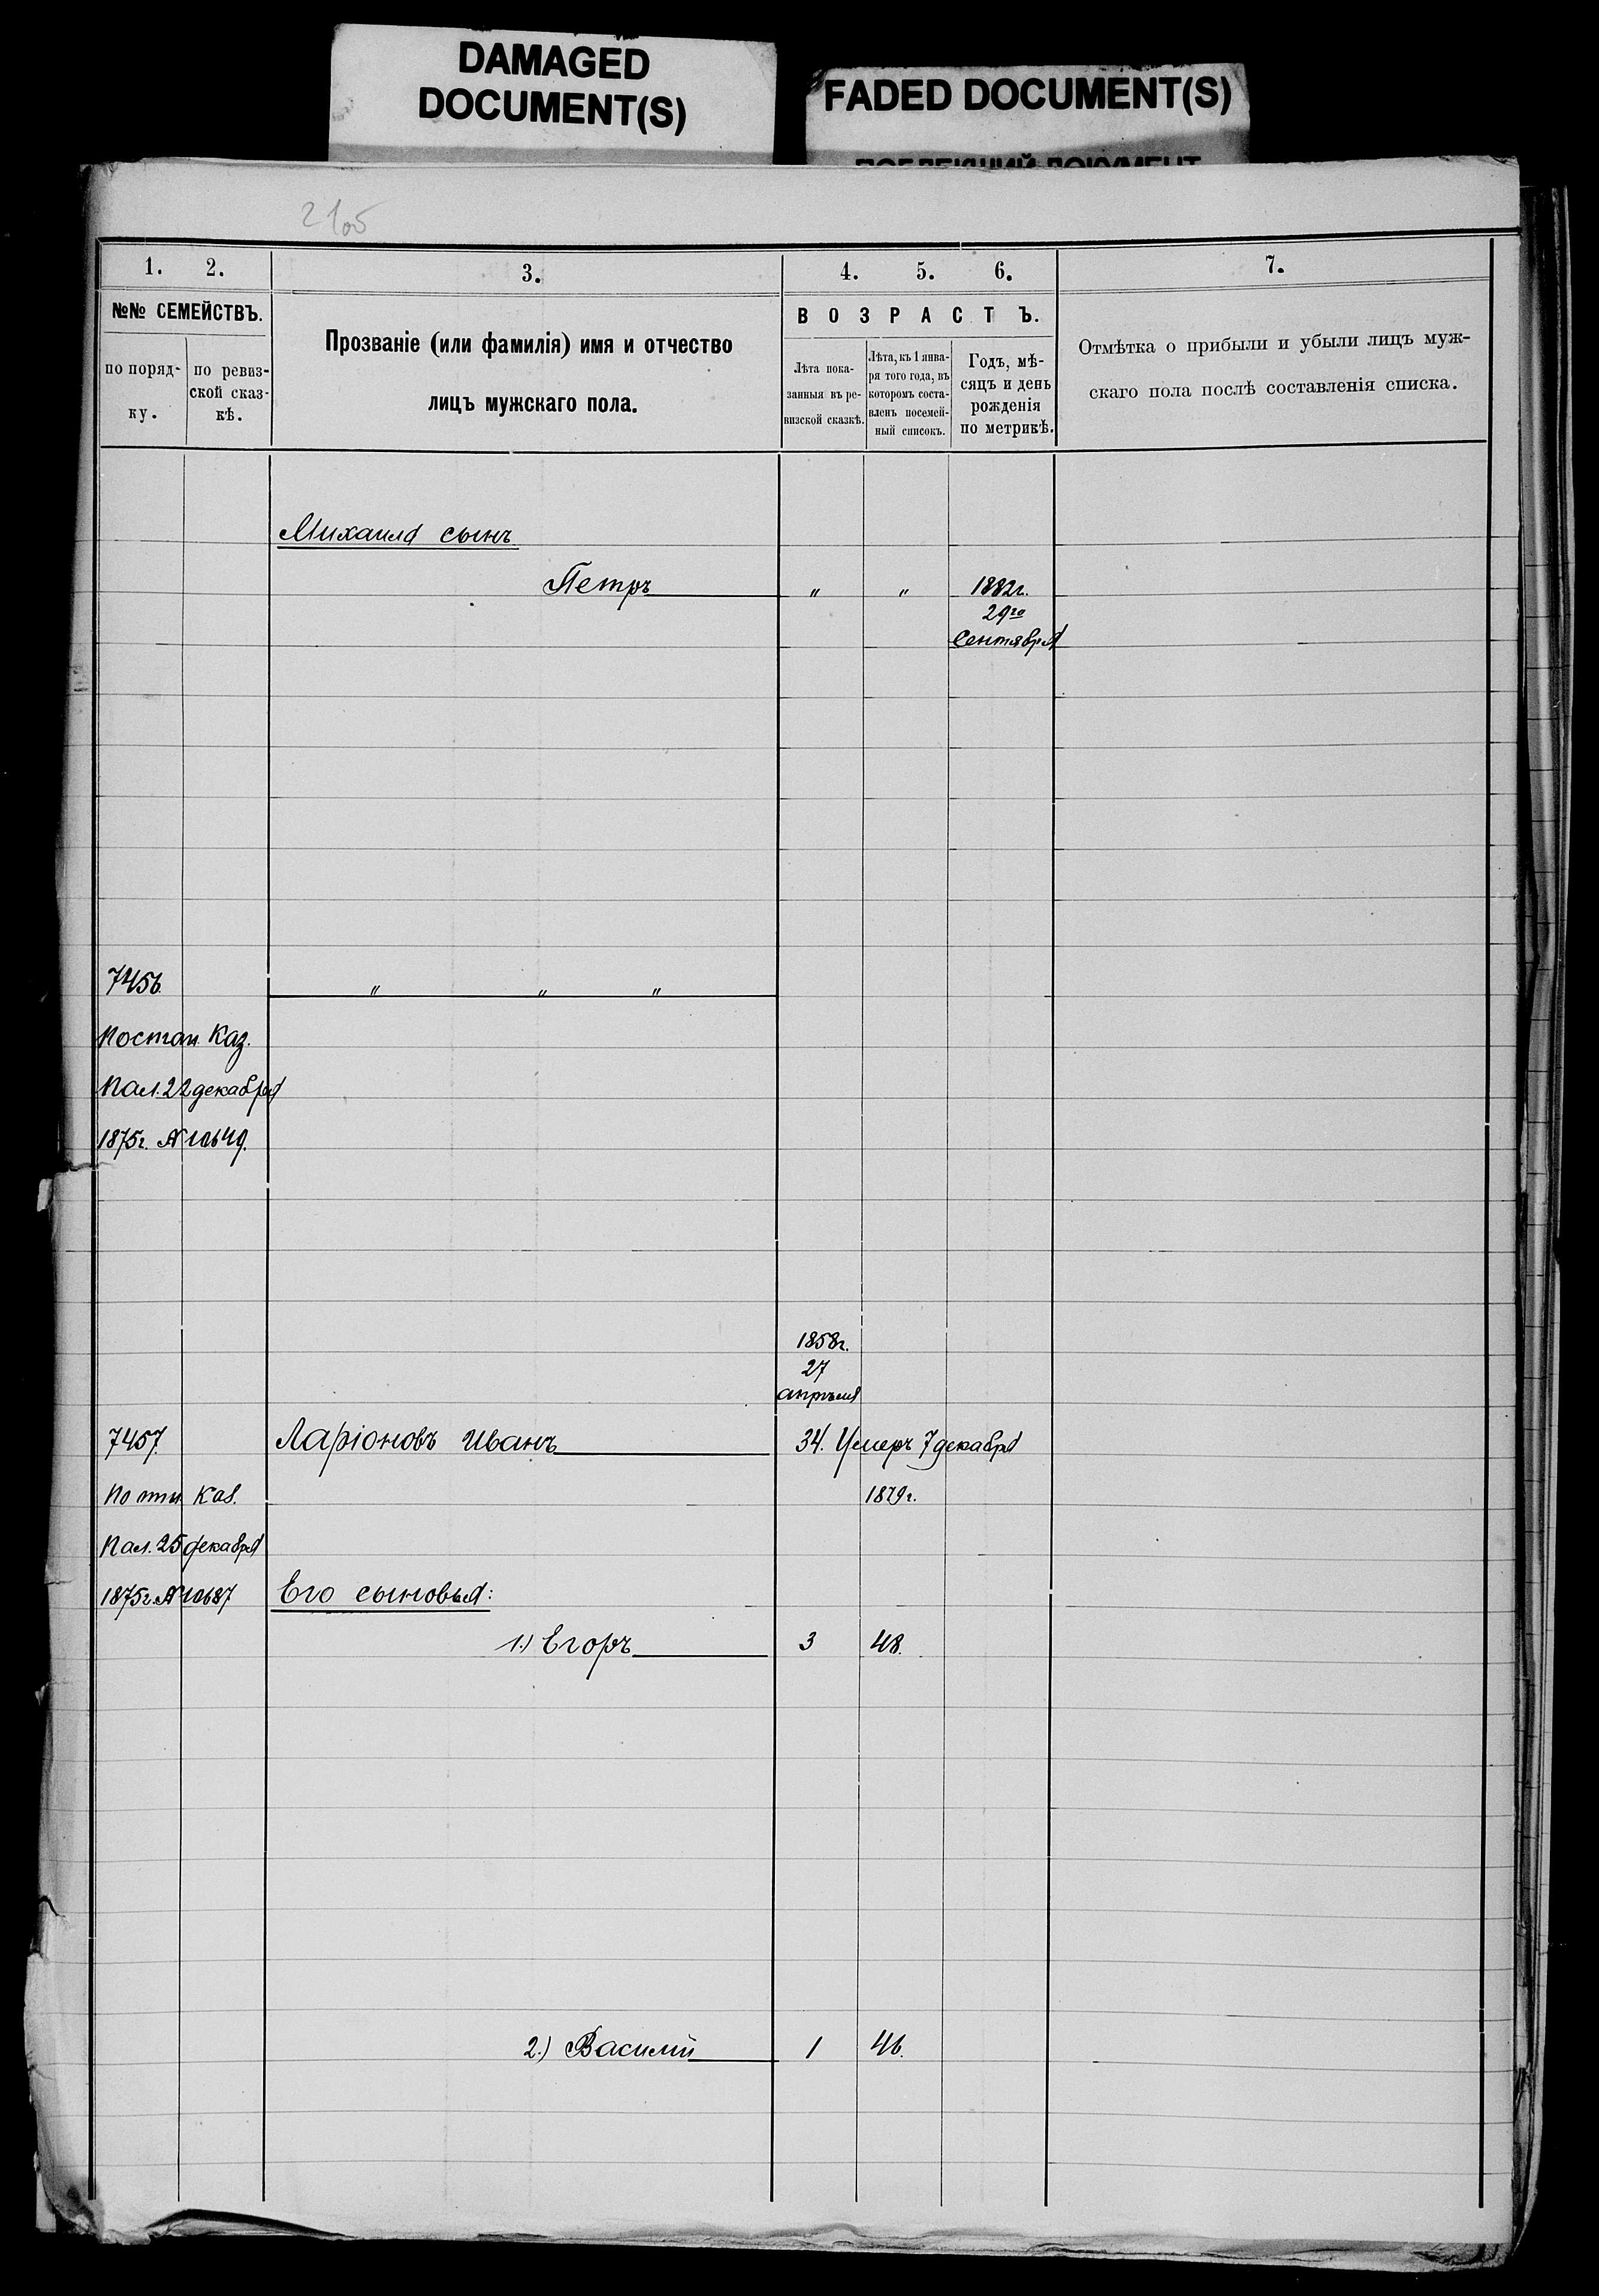 DAMAGED
DOCUMENT(S)
FADED DOCUMENT(S)
1. 2. 3. 4. 5. 6. 7.
№№ СЕМЕЙСТВЪ.
по поряд-
ку.
по ревиз-
ской сказ-
кѣ.
Прозваніе (или фамилія) имя и отчество
лицъ мужскаго пола.
ВОЗРАСТЪ.
Лѣта пока-
занныя въ ре-
визской сказкѣ.
Лѣта, къ 1 янва-
ря того года, въ
которомъ соста-
вленъ посемей-
ный списокъ.
Годъ, мѣ-
сяцъ и день
рожденія
по метрикѣ.
Отмѣтка о прибыли и убыли лицъ муж-
скаго пола послѣ составленія списка.
Михаила сынъ
Петръ " " 1882г.
29го
Сентября
7456. " " "
Постан. Каз.
Пал. 22 декабря
1875г. № 10649.
1858г.
27
апрѣля
7457. Ларіоновъ Иванъ 34. Умеръ 7 декабря
Каз. 1879г.
Пал. 25 декабря
1875г. № 10687 Его сыновья:
1.) Егоръ 3 48.
2.) Василій 1 46.